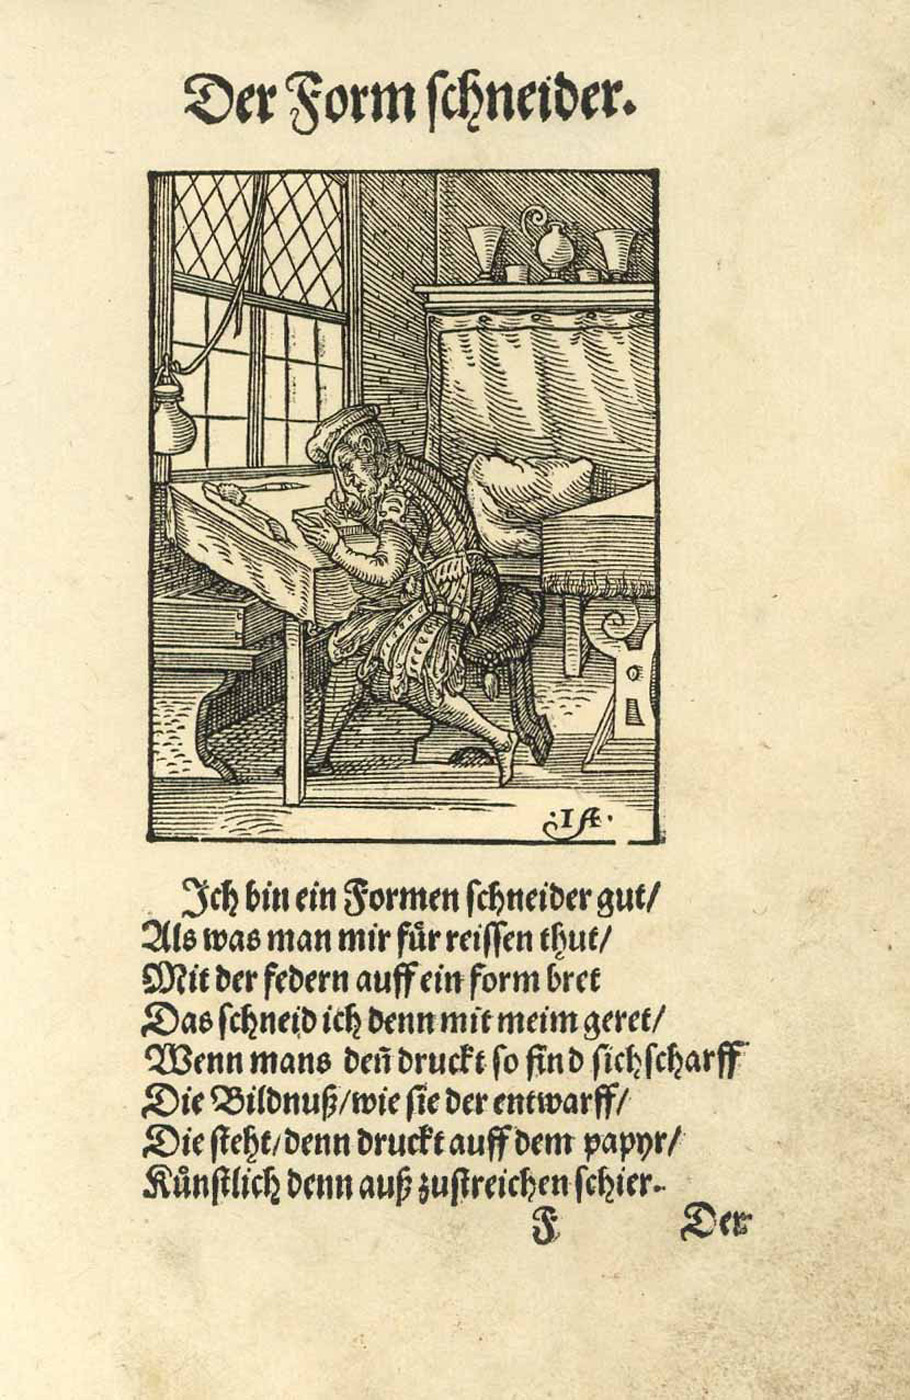 Der Form schneider.
·IA·
Ich bin ein Formen schneider gut/
Als was man mir fuͤr reissen thut/
Mit der federn auff ein form bret
Das schneid ich denn mit meim geret/
Wenn mans deñ druckt so find sich scharff
Die Bildnuß/wie sie der entwarff/
Die steht/denn druckt auff dem papyr/
Kuͤnstlich denn auß zustreichen schier.
F Der